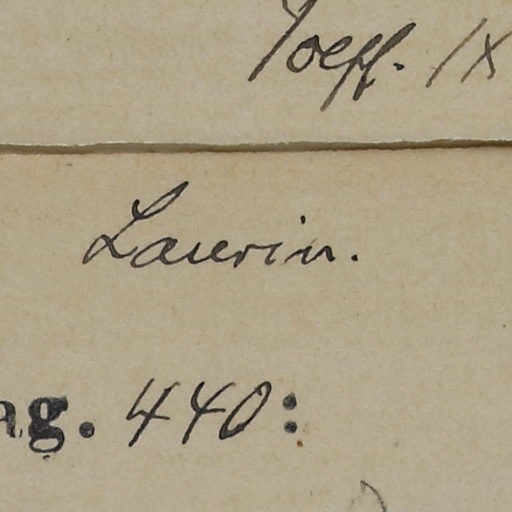 Toeff. IX
Laurin.
ag. 440: